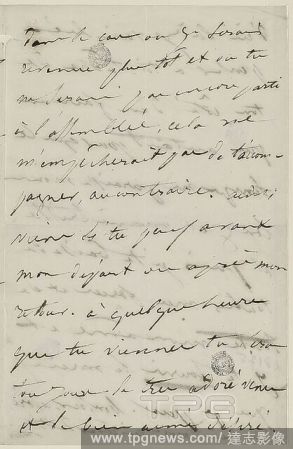 Dans le cas où je serais
revenue plus tôt et où tu
ne serais pas encore parti
à l'assemblée, cela ne
m'empêcherait pas de t'accom-
pagner, au contraire. ainsi
viens si tu peux avant
mon départ ou après mon
retour. à quelque heure
que tu viennes tu seras
toujours le très adoré venu
et le bien aimé désiré
TPG
IMAGES
www.tpgnews.com / 達志影像